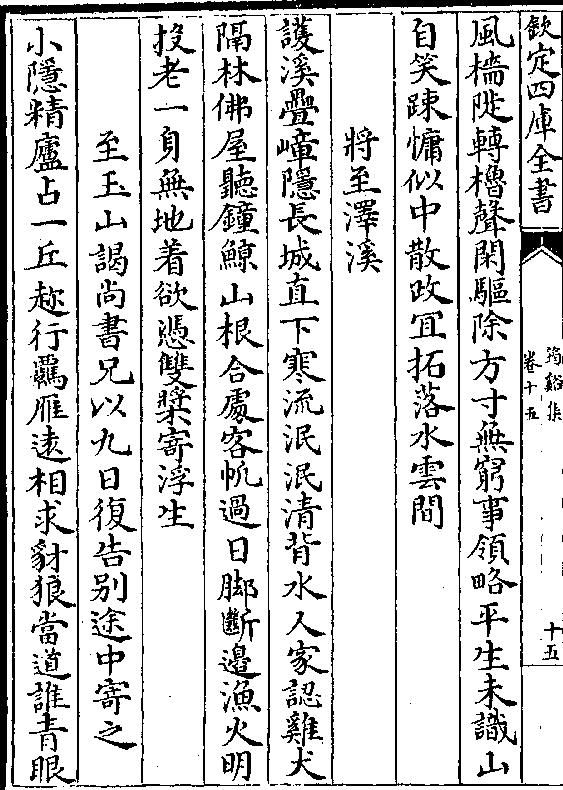 欽定四庫全書
筠谿集
卷十五
十五
風檣陡轉櫓聲閑驅除方寸無窮事領略平生未識山
自笑踈慵似中散政宜拓落水雲間
將至澤溪
護溪疊嶂隱長城直下寒流泯泯清背水人家認雞犬
隔林佛屋聽鐘鯨山根合處客帆過日脚斷邊漁火明
投老一身無地着欲憑雙槳寄浮生
至玉山謁尚書兄以九日復告别途中寄之
小隱精廬占一丘趂行羈雁逺相求豺狼當道誰青眼